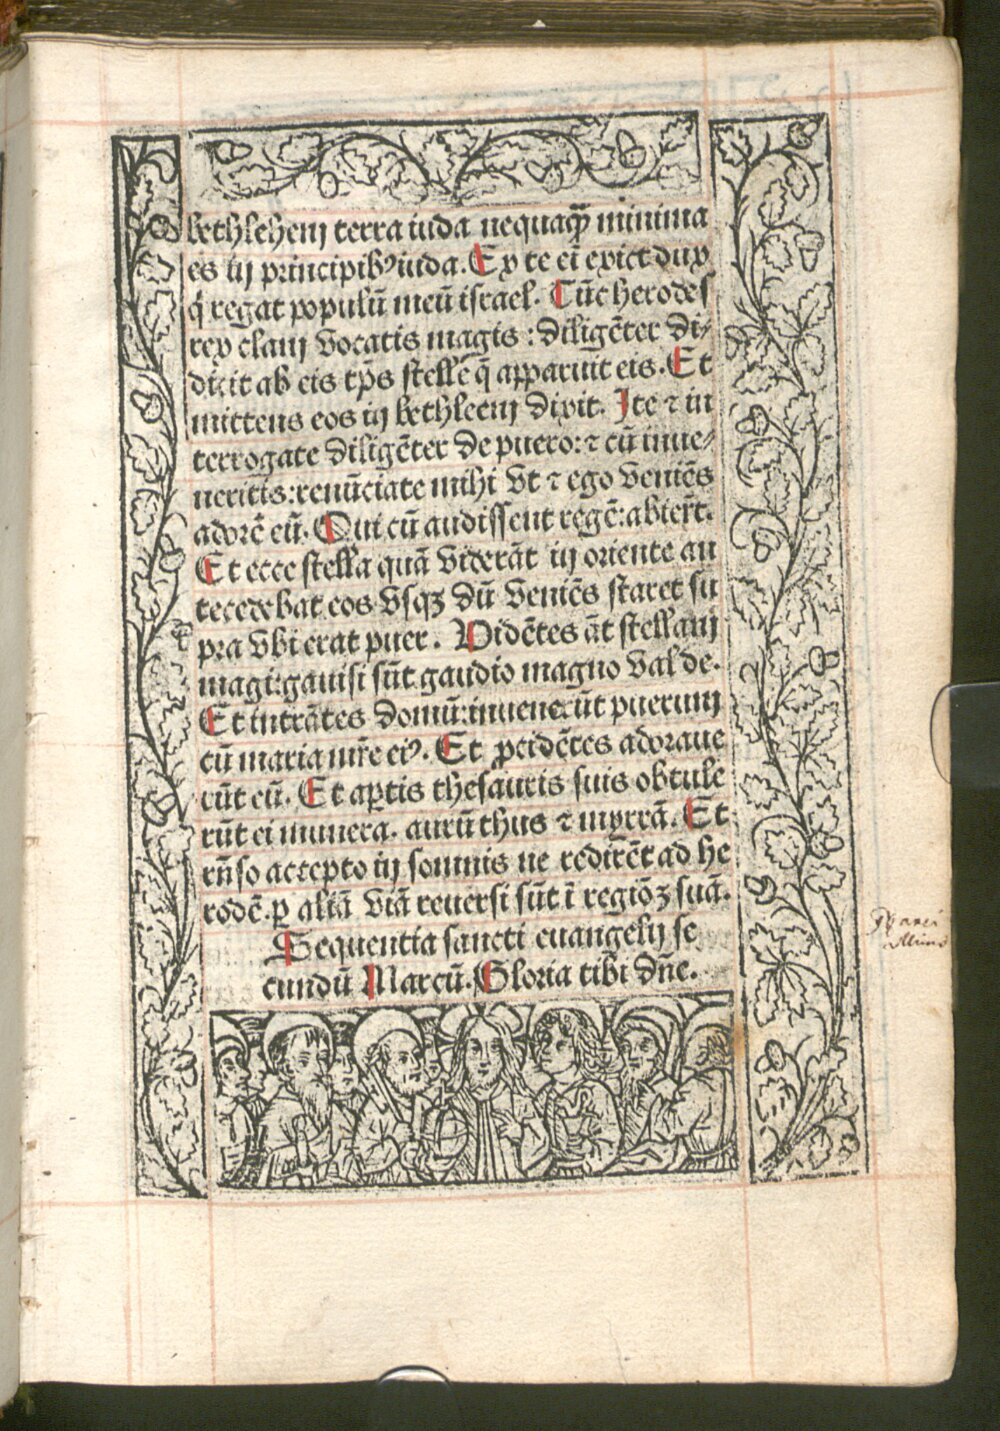 bethlehem terra iuda nequaq̄ȝ minima
es in principibꝰ iuda. Ex te ei̅ exiet dux
q̇ regat populū meū israel. Tūc herodes
rex clam vocatis magis : diligēter di⸗
dicit ab eis tp̄s stelle q̄ apparuit eis. Et
mittens eos in bethleem dixit. Ite ⁊ in
terrogate diligēter de puero: ⁊ cū inue⸗
neritis: renūciate mihi vt ⁊ ego veniēs
adorē eū. Qui cū audissent regē: abier̄t.
Et ecce stella quā viderāt in oriente an
tecedebat eos vsqȝ dū veniēs staret su
pra vbi erat puer. Vidētes āt stellam
magi: gauisi sūt gaudio magno valde.
Et intrātes domū: inuenerūt puerum
cū maria mr̄e eiꝰ. Et ꝓcidētes adoraue
rūt eū. Et aꝑtis thesauris suis obtule
rūt ei munera. aurū thus ⁊ myrrā. Et
rn̄so accepto in somnis ne redirēt ad he
rodē. ꝑ aliā viā reuersi sūt ī regiōȝ suā.
Sequentia sancti euangelij se
cundū Marcū. Gloria tibi dn̄e.